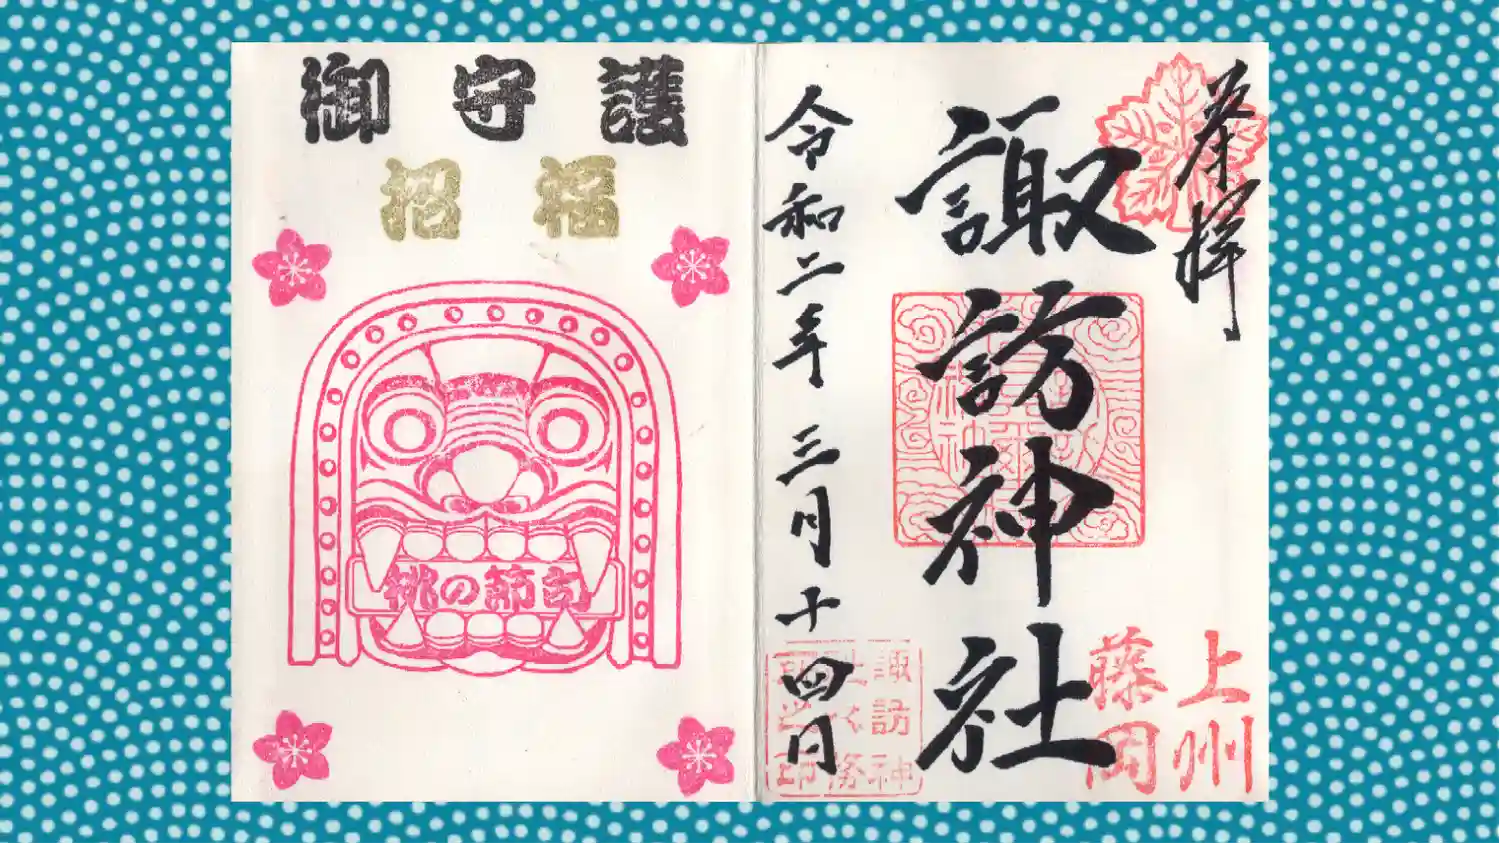 奉拝
諏訪神社
上州
藤岡
諏訪神
社
印
令和二年三月十四日
御守護
招福
桃の節句